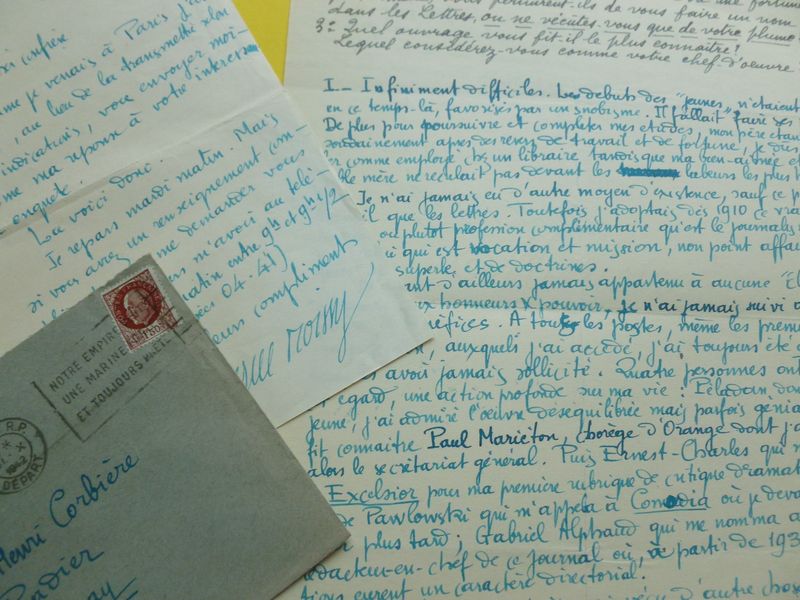 si confrère
me je venais à Paris j'ai
, au lieu de la transmettre selon
indications, vous envoyer moi-
me ma réponse à votre intéress
enquête.
La voici donc. Mais
Je repars mardi matin.
si vous aviez un renseignement com-
me demander vous
m'avoir au télé-
matin entre 9h et 9h 1/2
04.41)
eurs compliments
NOTRE EMPIRE
UNE MARINE
ET TOUJOURS PRET
1F50
R.P.
1942
DEPART
Henri Corbière
dans les Lettres, ou ne vécûtes-vous que de votre plume
3: Quel ouvrage vous fit-il le plus connaître?
Lequel considérez-vous comme votre chef-d'oeuvre?
I.- Infiniment difficiles. Les débuts des "jeunes" n'étaient
en ce temps-là, favorisés par un snobisme. Il fallait faire ses
De plus pour poursuivre et compléter mes études, mon père étant
soudainement après des revers de travail et de fortune, je dus
er comme employé chez un libraire tandis que ma bien-aimée et
le mère ne reculait pas devant les labeurs les plus h
Je n'ai jamais eu d'autre moyen d'existence, sauf ce p
il que les lettres. Toutefois j'adoptais dès 1910 ce vrai
ou plutôt profession complimentaire qu'est le journalis
i qui est vocation et mission, non point affai
superbe et de doctrines.
nt d'ailleurs jamais appartenu à aucune "El
ux honneurs x pouvoir, je n'ai jamais suivi
néfices. A tous les postes, même les premi
, auxquels j'ai accédé, j'ai toujours été
avoir jamais sollicité. Quatre personnes ont
égard, une action profonde sur ma vie: Péladan dont
jeune, j'ai admiré l'oeuvre déséquilibrée mais parfois génia
fit connaître Paul Mariéton, chorège d'Orange dont j'a
alors le secrétariat général. Puis Ernest-Charles qui m
Excelsior pour ma première rubrique de critique dramat
de Pawlowski qui m'appela à Comœdia où je deva
plus tard; Gabriel Alphaud qui me nomma
édacteur-en-chef de ce journal où, à partir de 193
tions eurent un caractère directorial.